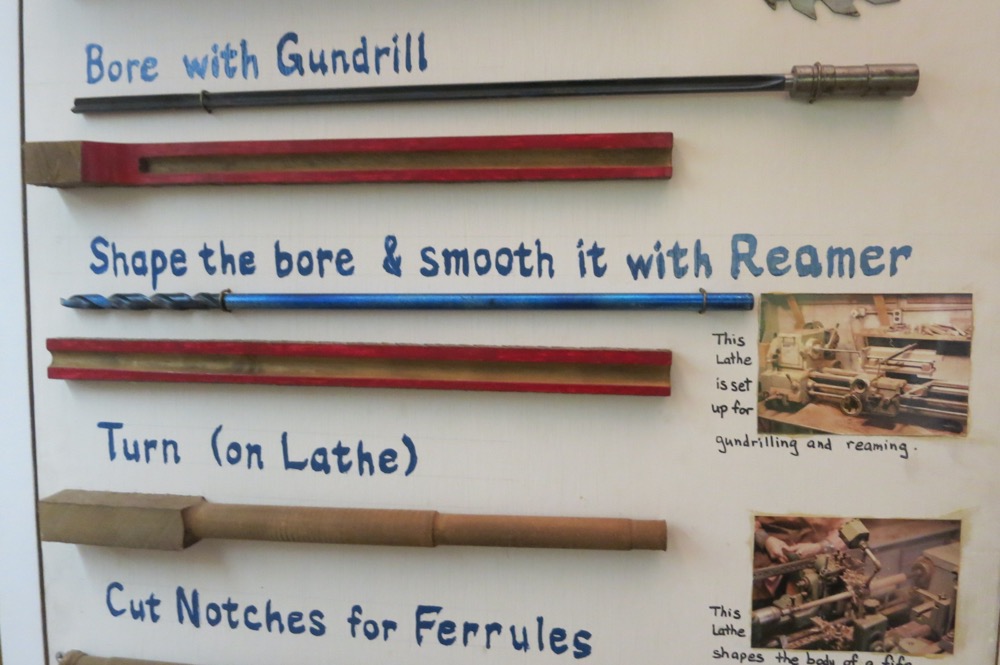 Bore with Gundrill
Shape the bore & smooth it with Reamer
This
Lathe
is set
up for
gundrilling and reaming.
Turn (on Lathe)
Cut Notches for Ferrules
This
Lathe
shapes the body of a fife